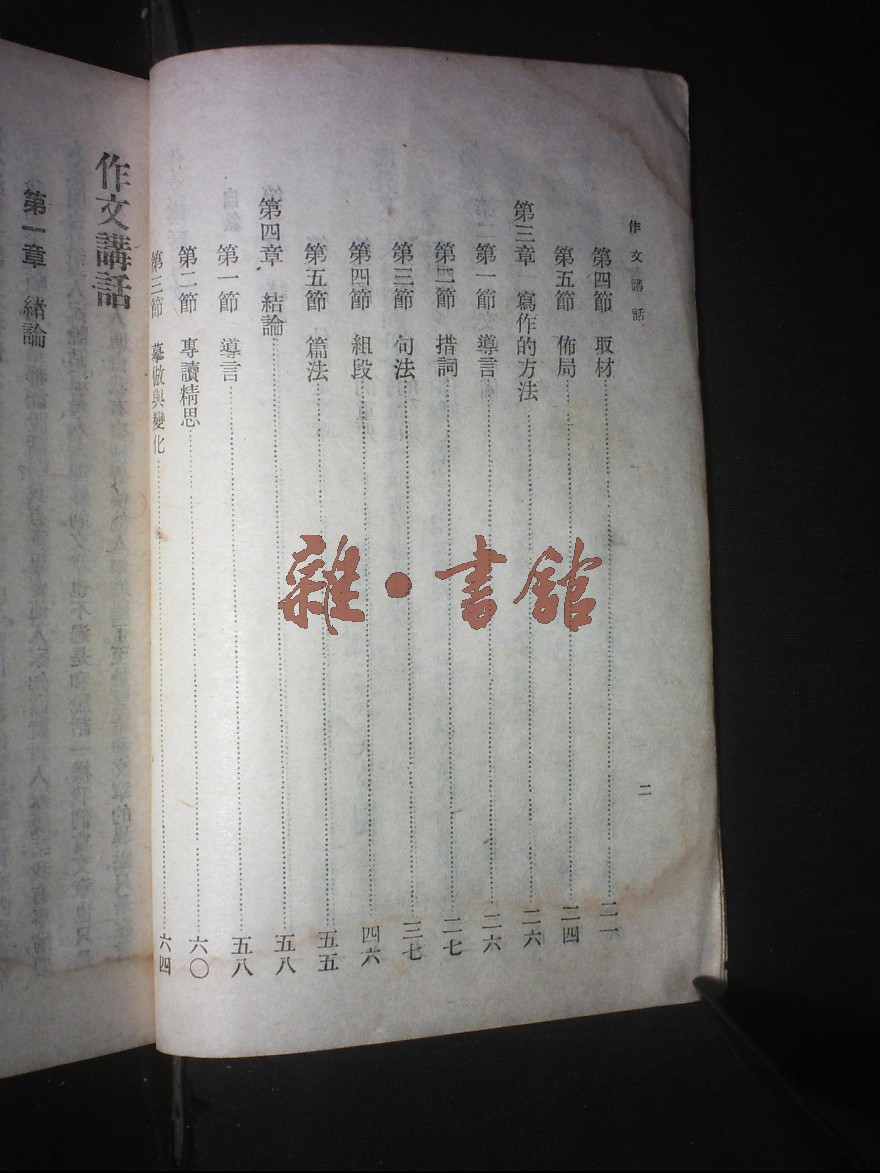 作文講話
二
第四節　取材……二一
第五節　佈局……二四
第三章　寫作的方法……二六
第一節　導言……二六
第二節　措詞……二七
第三節　句法……三七
第四節　組段……四六
第五節　篇法……五五
第四章　結論……五八
第一節　導言……五八
第二節　專讀精思……六〇
第三節　摹倣與變化……六四
作文講話
第一章　緒論
雜·書館